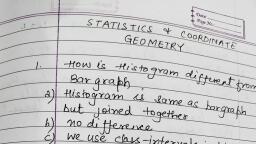 Date
Page No.
STATISTICS & COORDINATE
GEOMETRY
1. How is Histogram different from
Bargraph.
a) Histogram is same as bargraph
but joined together
b) no difference
c) we use class-intervals